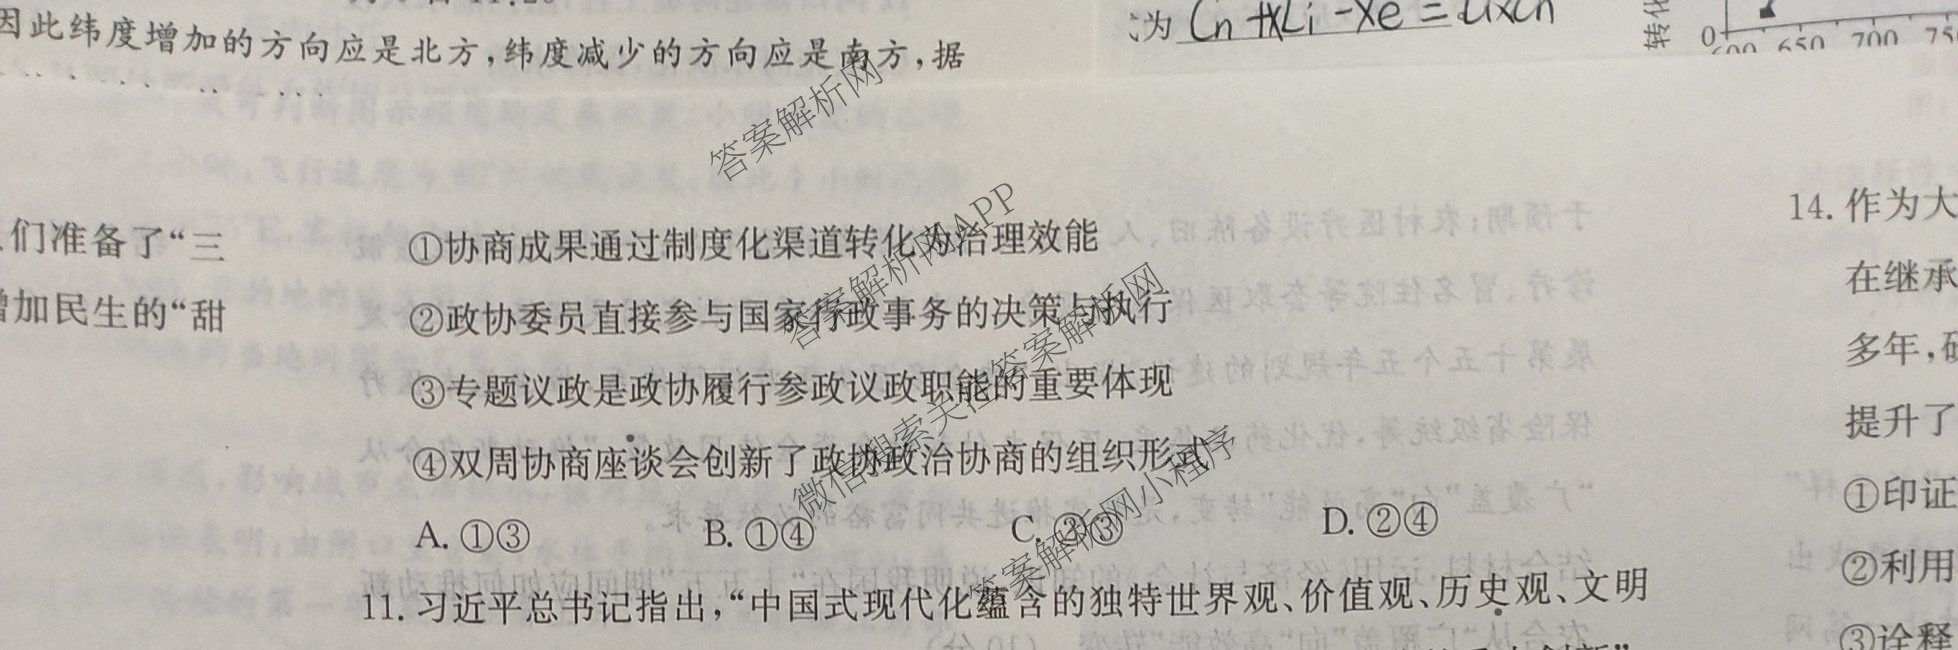 因此纬度增加的方向应是北方,纬度减少的方向应是南方,据
为 Cn+xLi-xe=LixCn
转化
0
600 650 700 750
们准备了“三
增加民生的“甜
①协商成果通过制度化渠道转化为治理效能
②政协委员直接参与国家行政事务的决策与执行
③专题议政是政协履行参政议政职能的重要体现
④双周协商座谈会创新了政协政治协商的组织形式
A. ①③ B. ①④ C. ②③ D. ②④
11. 习近平总书记指出,“中国式现代化蕴含的独特世界观、价值观、历史观、文明
14. 作为大
在继承
多年,
提升了
①印证
②利用
③诠释
答案解析网
答案解析网APP
微信搜索关注答案解析网
答案解析网小程序